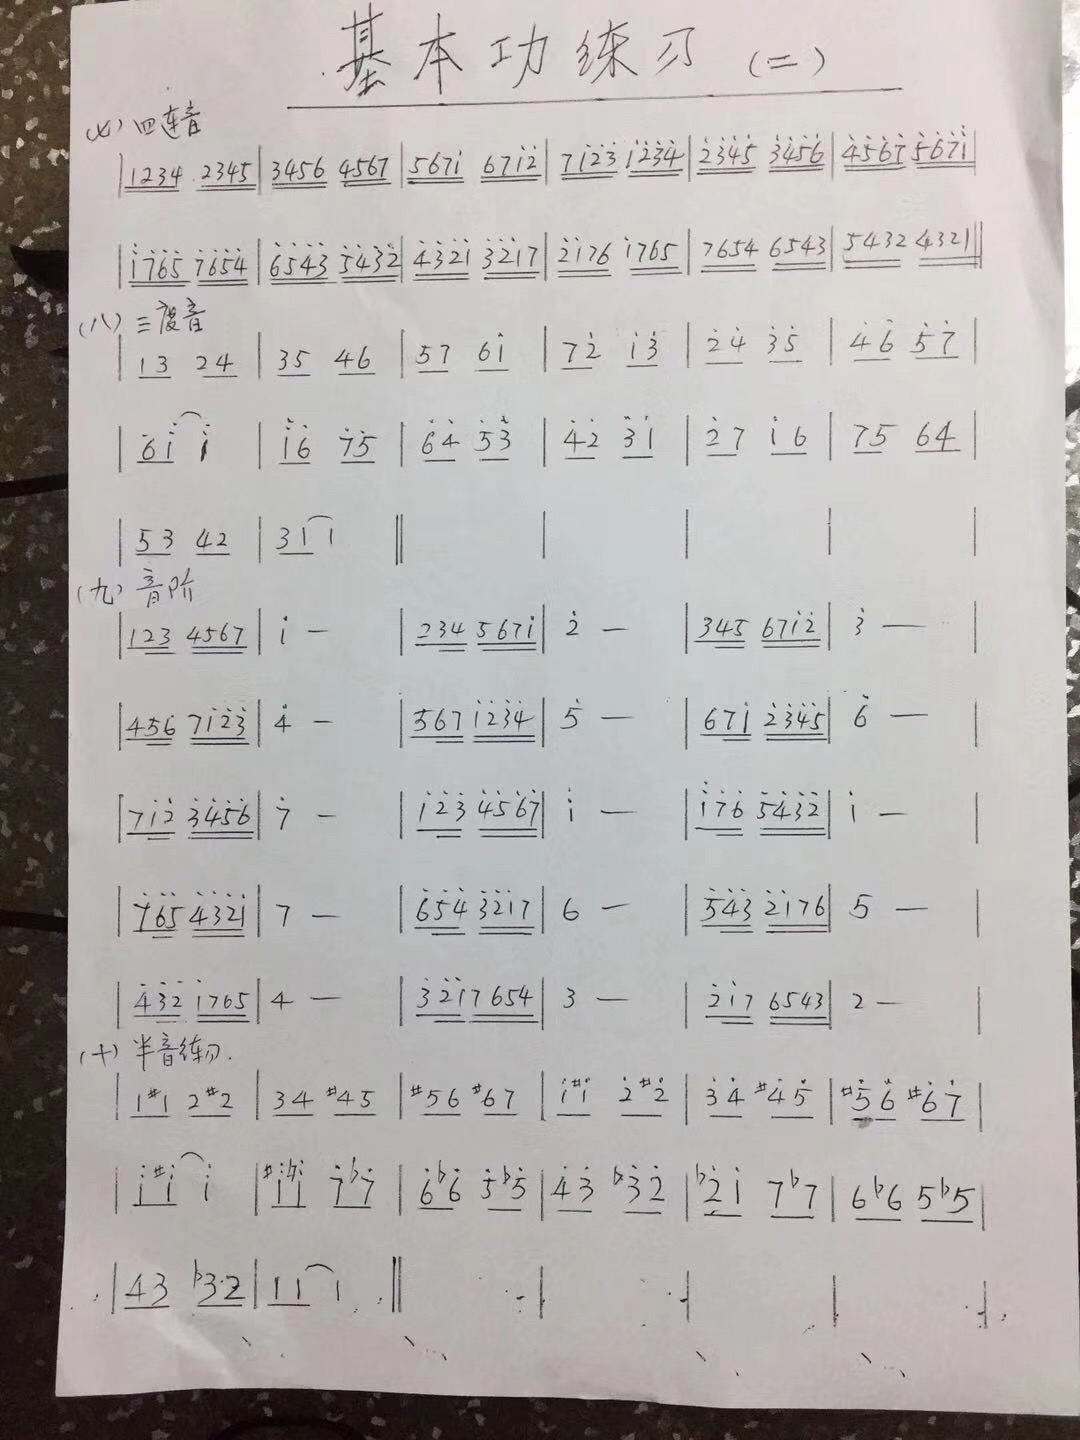 基本功练习(二)
(七)四连音
|1234 2345|3456 4567|567i 67i2̇|7i2̇3̇ i2̇3̇4̇|2̇3̇4̇5̇ 3̇4̇5̇6̇|4̇5̇6̇7̇ 5̇6̇7̇i̇|
|i̇7̇6̇5̇ 7̇6̇5̇4̇|6̇5̇4̇3̇ 5̇4̇3̇2̇|4̇3̇2̇i 3̇2̇i7|2̇i76 i765|7654 6543|5432 4321‖
(八)三度音
|13 24|35 46|57 6i|72̇ i3̇|2̇4̇ 3̇5̇|4̇6̇ 5̇7̇|
|6̇i̇ i̇|i̇6̇ 7̇5̇|6̇4̇ 5̇3̇|4̇2̇ 3̇i|2̇7 i6|75 64|
|53 42|31 1‖ | | | |
(九)音阶
|123 4567|i —|234 567i|2̇ —|345 67i2̇|3̇ —|
|456 7i2̇3̇|4̇ —|567 i2̇3̇4̇|5̇ —|67i 2̇3̇4̇5̇|6̇ —|
|7i2̇ 3̇4̇5̇6̇|7̇ —|i2̇3̇ 4̇5̇6̇7̇|i̇ —|i̇7̇6̇ 5̇4̇3̇2̇|i —|
|7̇6̇5̇ 4̇3̇2̇i|7 —|6̇5̇4̇ 3̇2̇i7|6 —|5̇4̇3̇ 2̇i76|5 —|
|4̇3̇2̇ i765|4 —|3̇2̇i7 654|3 —|2̇i7 6543|2 —|
(十)半音练习.
|1#1 2#2|34 #45|#56 #67|i#i 2̇#2̇|3̇4̇ #4̇5̇|#5̇6̇ #6̇7̇|
|i̇#i̇ i̇|#i̇♮i̇ 7̇♭7̇|6̇♭6̇ 5̇♭5̇|4̇3̇ ♭3̇2̇|♭2̇i 7♭7|6♭6 5♭5|
|43 ♭32|11 1‖ | | | |